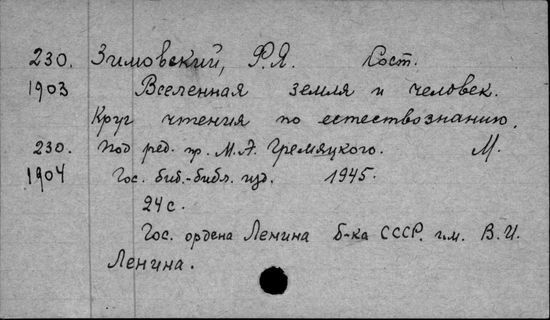 230. Зимовский, Ф.Я. Сост.
1903 Вселенная земля и человек.
Круг чтения по естествознанию.
230. Под ред. пр. М.А. Гремяцкого. М.
1904 Гос. биб.-библ. изд. 1945.
24 с.
Гос. ордена Ленина б-ка СССР. им. В.И.
Ленина.